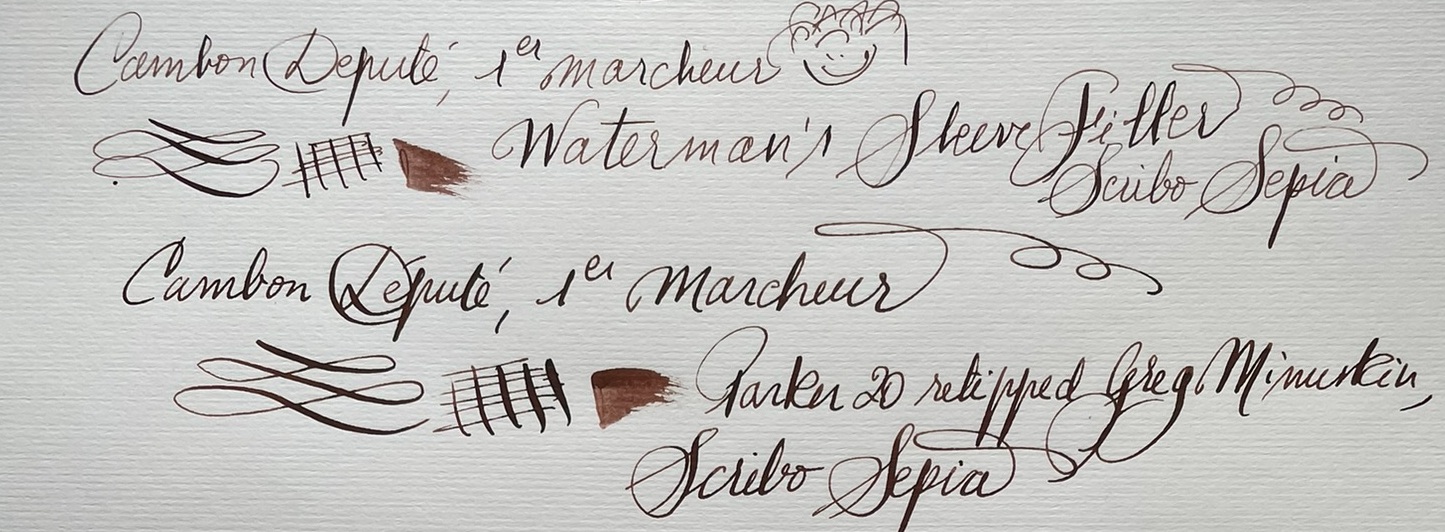 Cambon Députe, 1er marcheur
Waterman's Sleeve Filler
Scribo Sepia
Cambon Député, 1er Marcheur
Parker 20 retipped Greg Minuskin,
Scribo Sepia